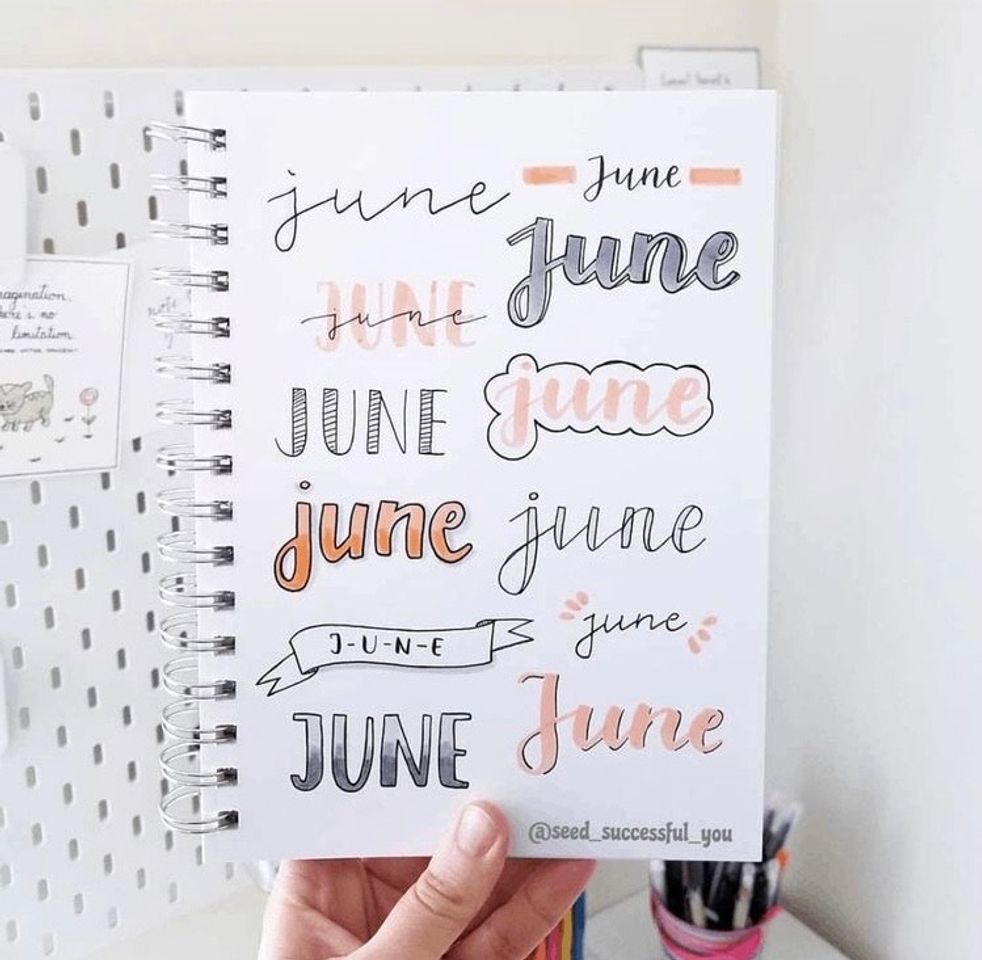 june
June
June
JUNE
june
JUNE
june
june
june
J-U-N-E
june
JUNE
June
@seed_successful_you
agination.
here's no
limitation